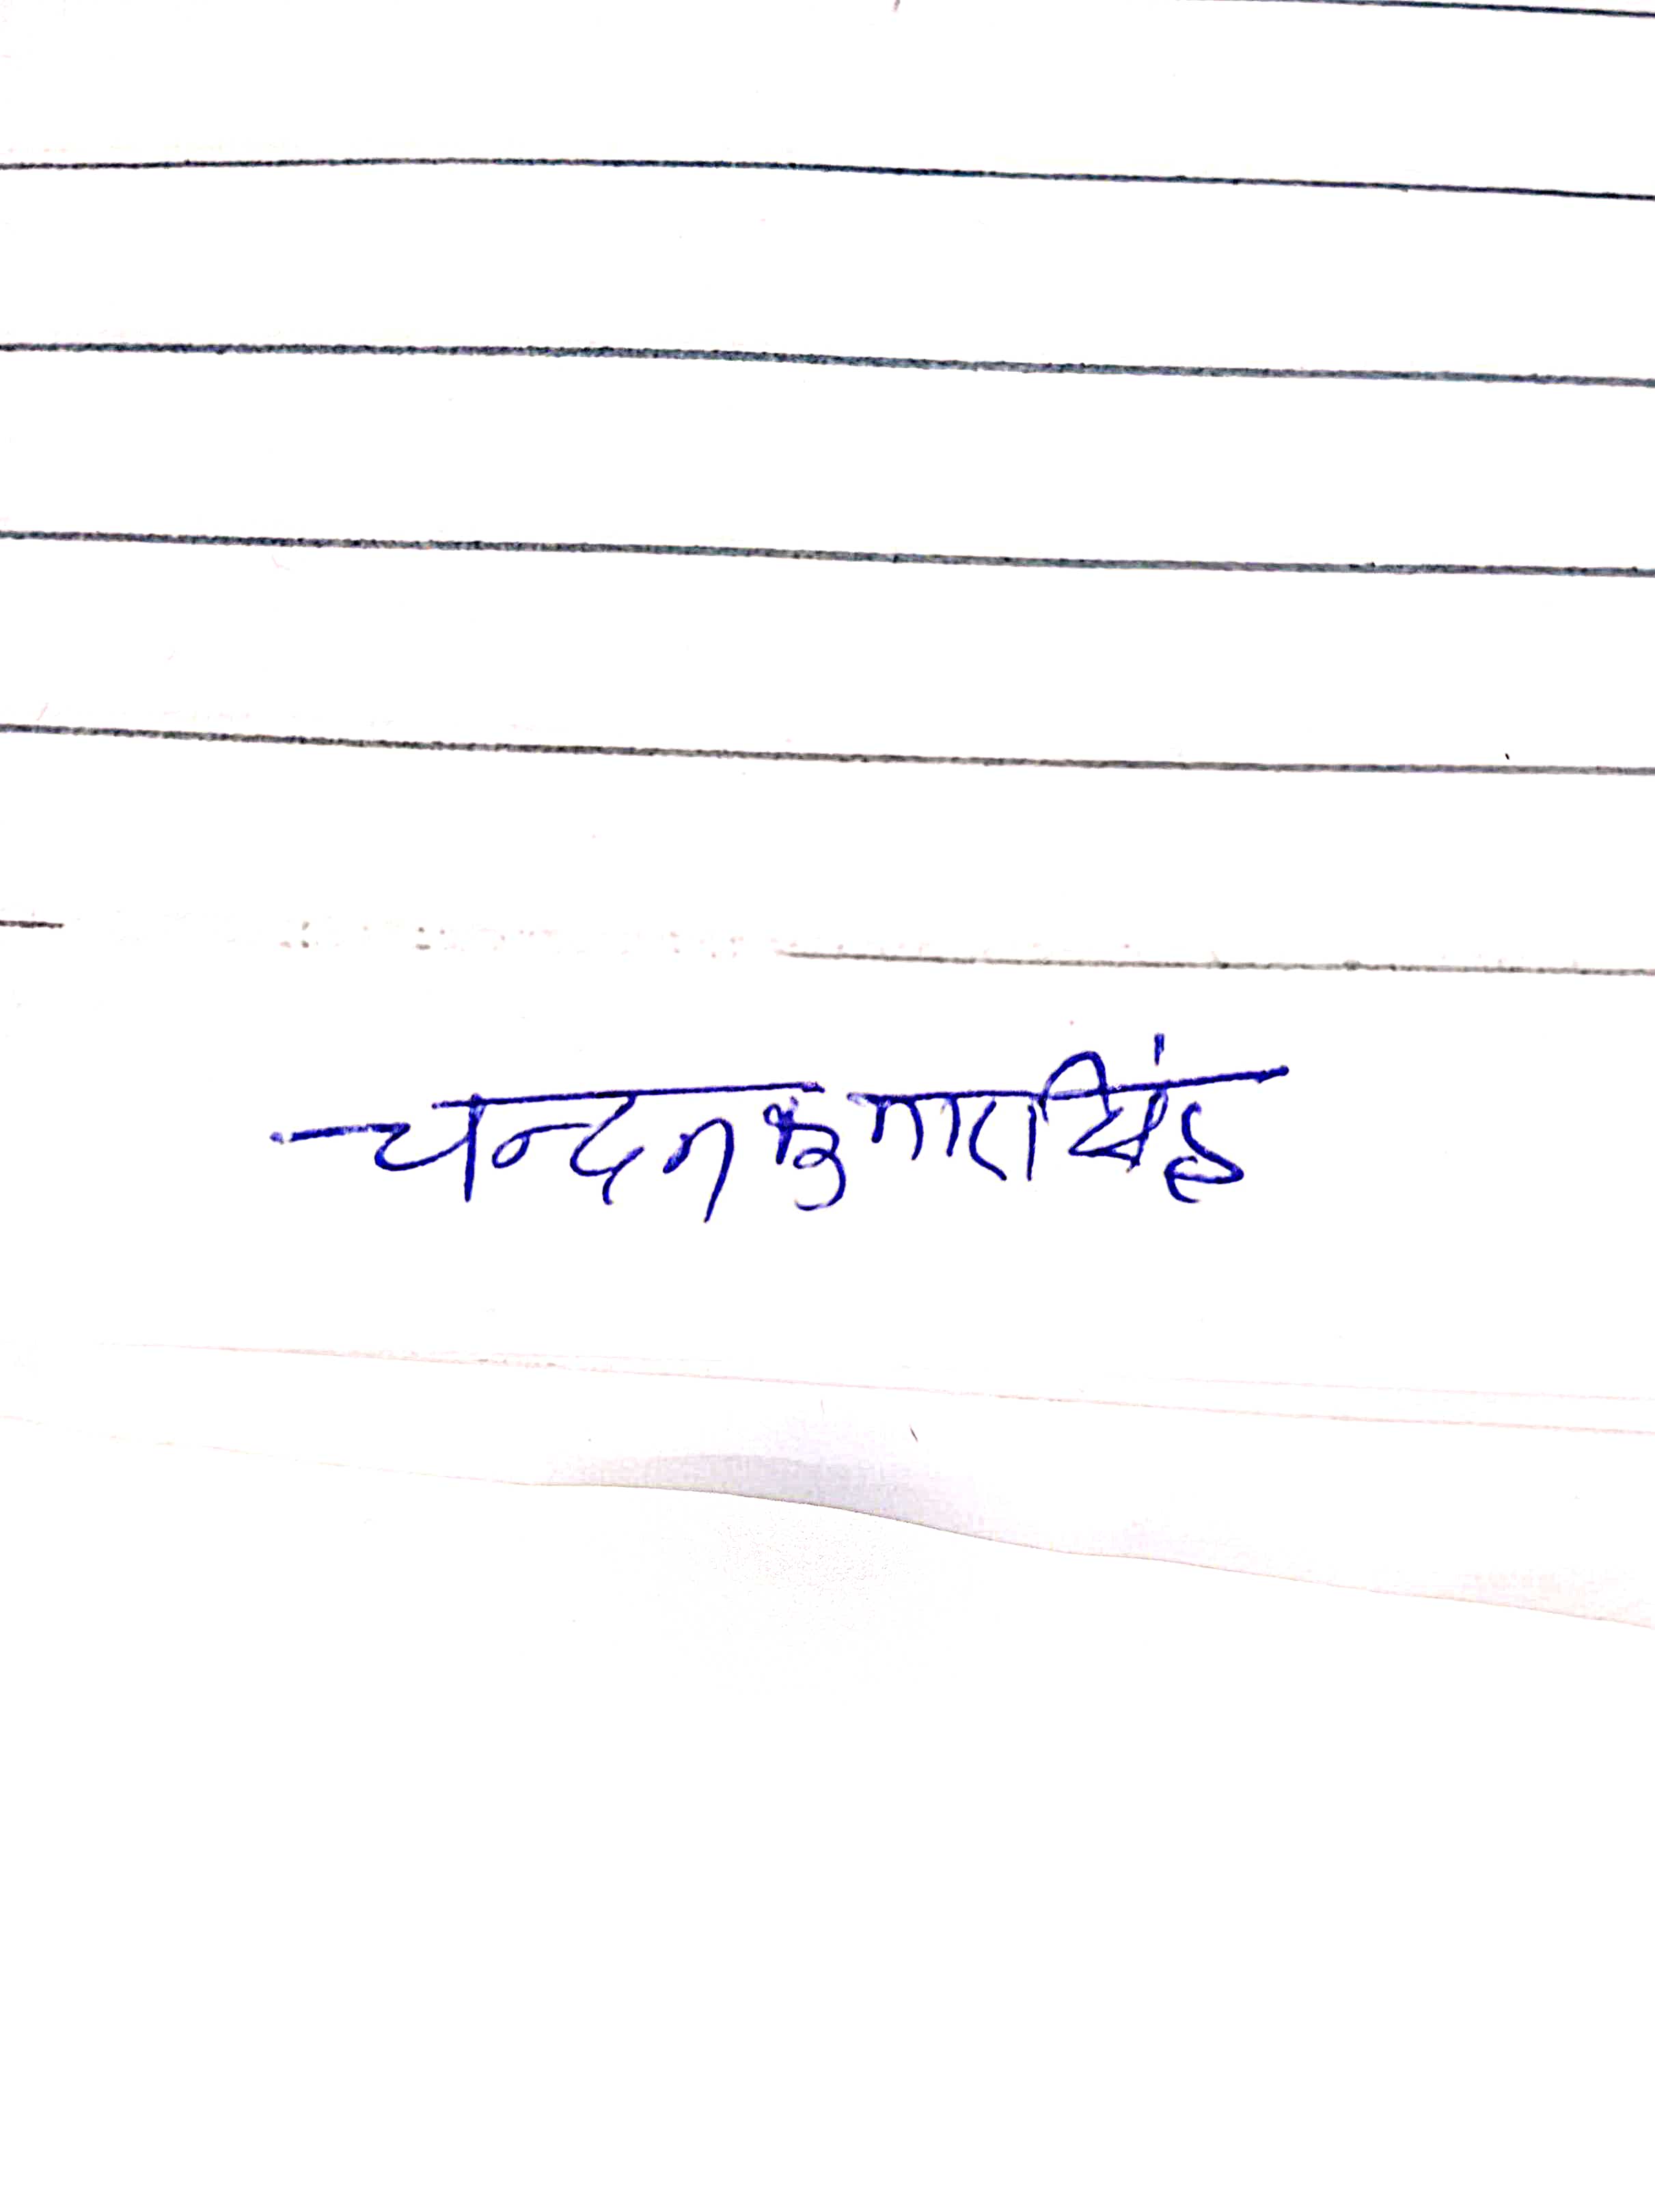 चन्दन कुमार सिंह